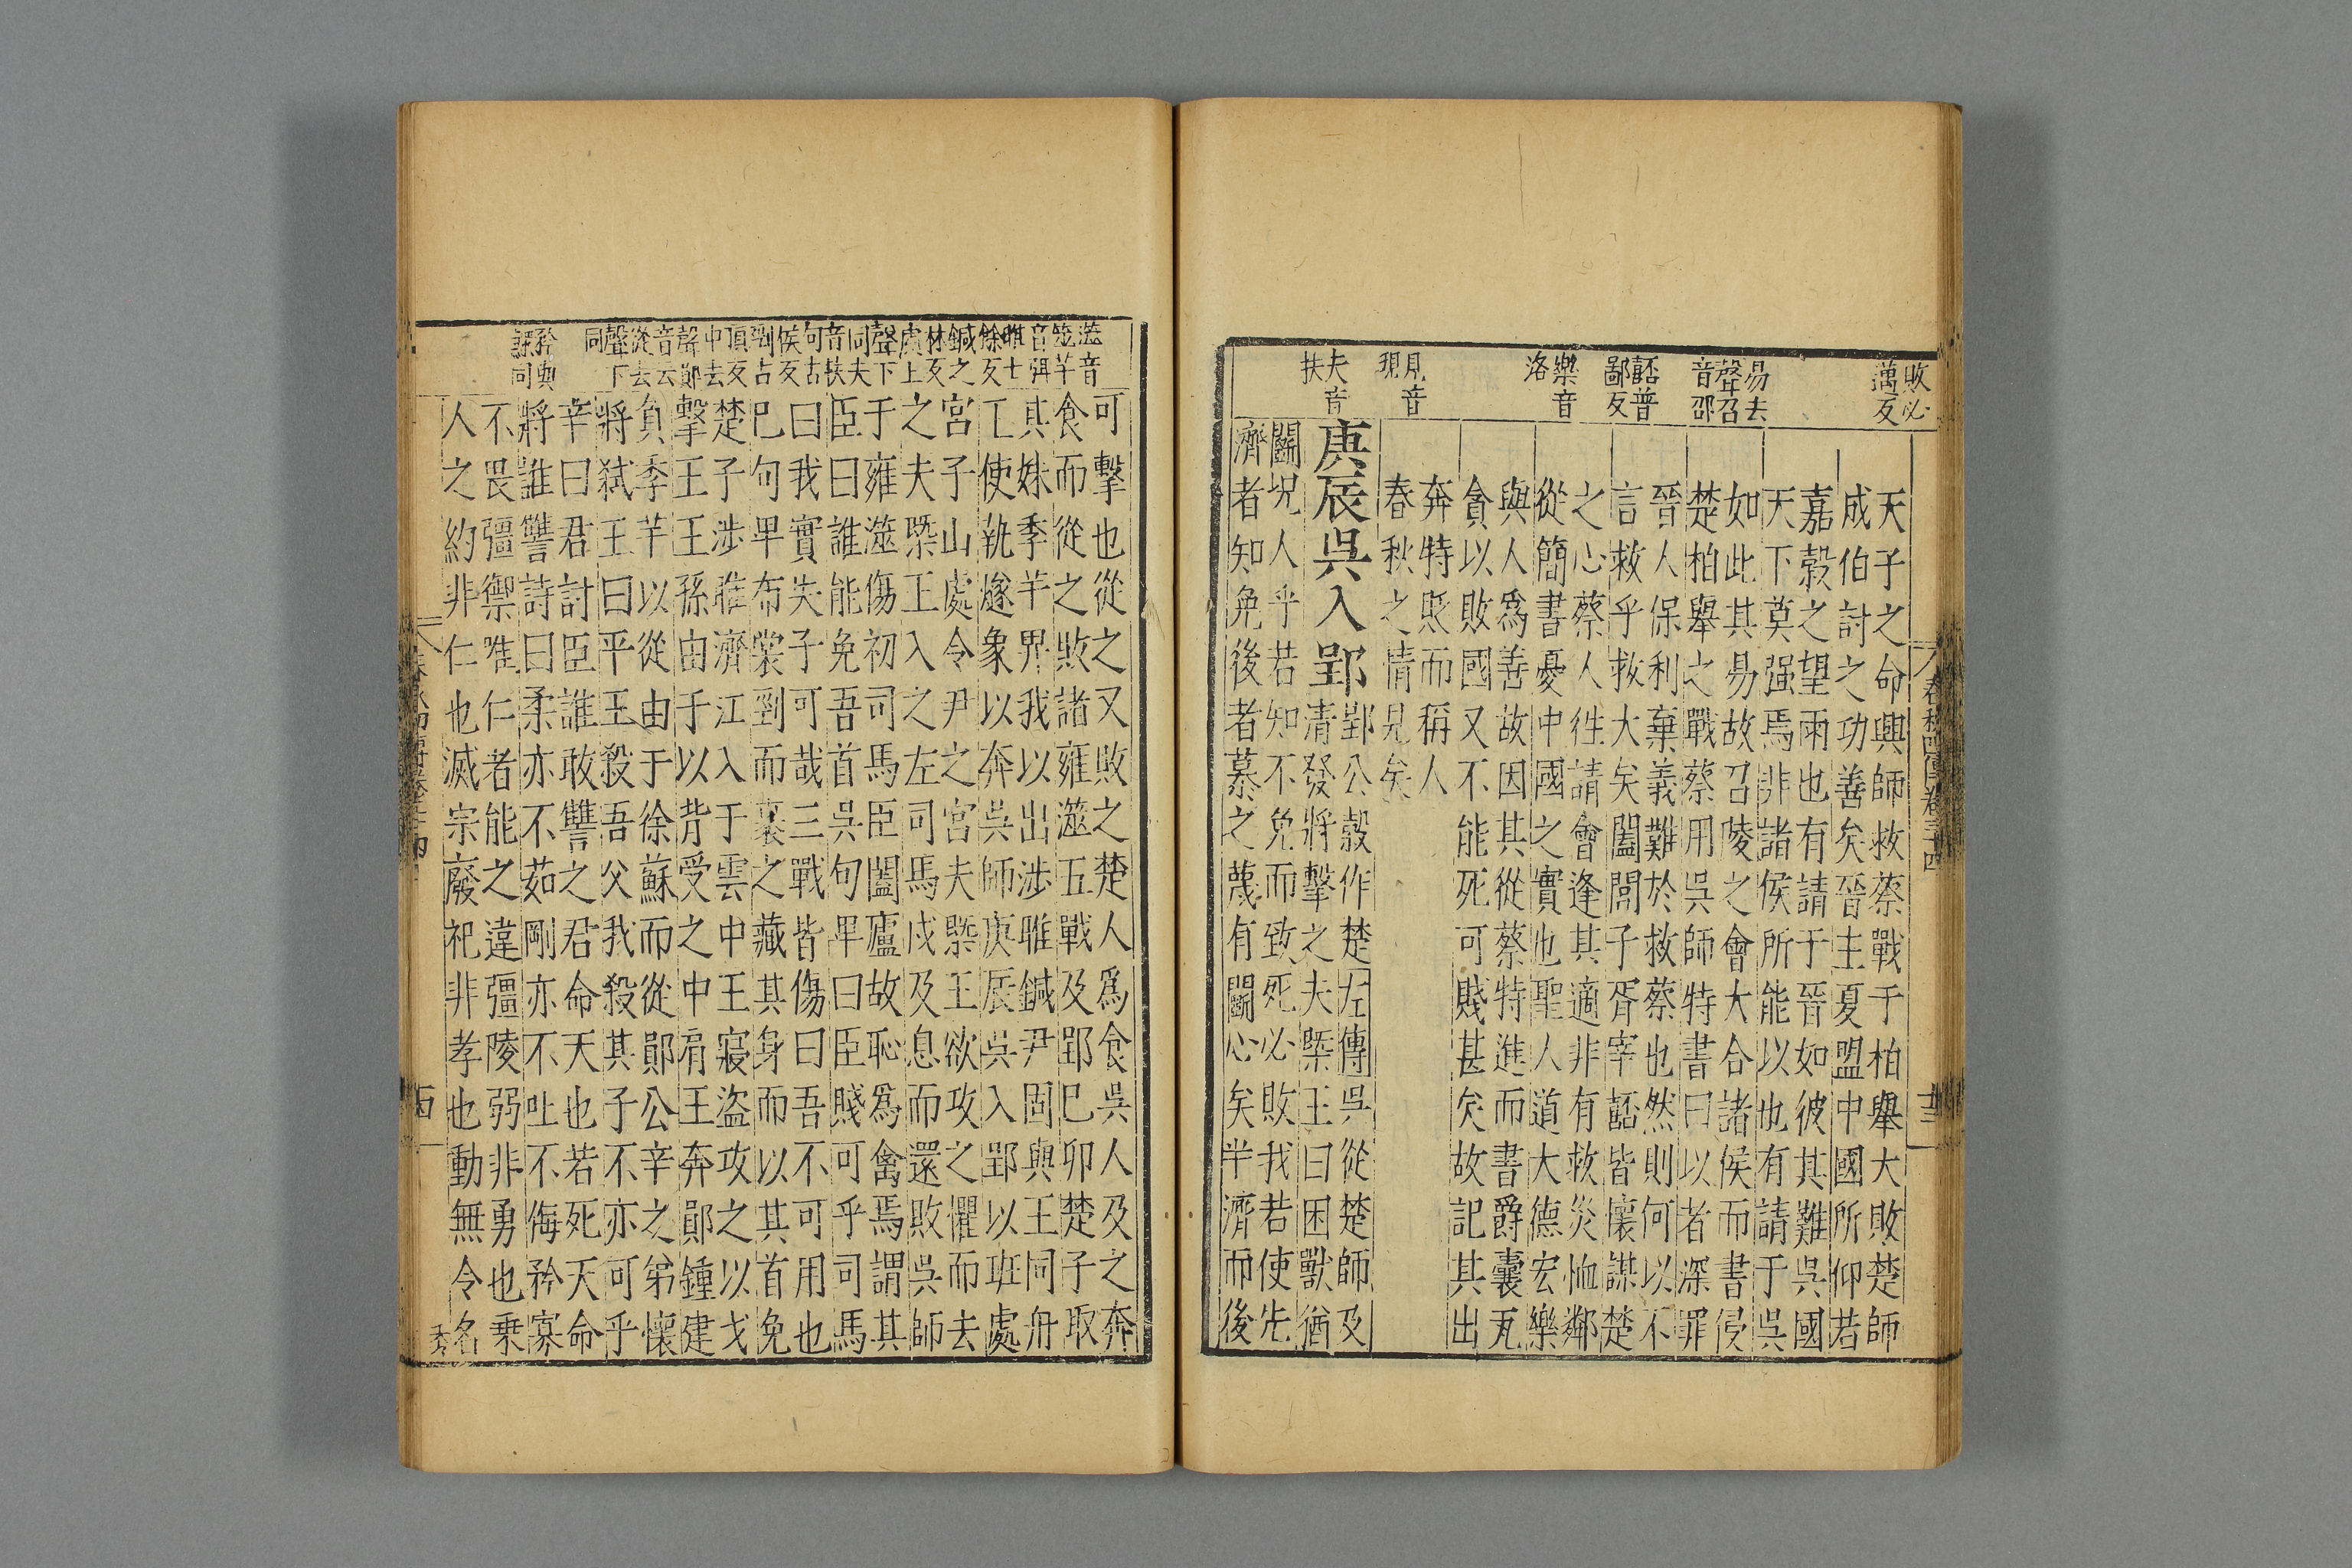 春秋四傳卷三十四
敗必
邁反
易去
聲召
音邵
嚭普
鄙反
樂音
洛
見音
現
夫音
扶
天子之命興師救蔡戰于柏舉大敗楚師
成伯討之功善矣晉主夏盟中國所仰若
嘉穀之望雨也有請于晉如彼其難吳國
天下莫强焉非諸侯所能以也有請于吳
如此其易故召陵之會大合諸侯而書侵
楚柏舉之戰蔡用吳師特書曰以者深罪
晉人保利棄義難於救蔡也然則何以不
言救乎救大矣闔閭子胥宰嚭皆懷謀楚
之心蔡人徃請會逢其適非有救災恤鄰
從簡書憂中國之實也聖人道大德宏樂
與人爲善故因其從蔡特進而書爵囊瓦
貪以敗國又不能死可賤甚矣故記其出
奔特貶而稱人
春秋之情見矣
庚辰吳入郢
郢公穀作楚左傳吳從楚師及
清發將擊之夫槩王曰困獸猶
鬭況人乎若知不免而致死必敗我若使先
濟者知免後者慕之蔑有鬭心矣半濟而後
澨音
筮芊
音弭
睢士
餘反
鍼之
林反
處上
聲下
同夫
音扶
句古
侯反
剄古
頂反
中去
聲鄖
音云
從去
聲下
同
矜與
鰥同
可擊也從之又敗之楚人爲食吳人及之奔
食而從之敗諸雍澨五戰及郢巳卯楚子取
其妹季芊畀我以出涉睢鍼尹固與王同舟
王使執燧象以奔吳師庚辰吳入郢以班處
宮子山處令尹之宮夫槩王欲攻之懼而去
之夫槩王入之左司馬戌及息而還敗吳師
于雍澨傷初司馬臣闔廬故恥爲禽焉謂其
臣曰誰能免吾首吳句卑曰臣賤可乎司馬
曰我實失子可哉三戰皆傷曰吾不可用也
巳句卑布裳剄而裹之藏其身而以其首免
楚子涉睢濟江入于雲中王寢盜攻之以戈
擊王王孫由于以背受之中肩王奔鄖鍾建
負季芊以從由于徐蘇而從鄖公辛之弟懷
將弑王曰平王殺吾父我殺其子不亦可乎
辛曰君討臣誰敢讐之君命天也若死天命
將誰讐詩曰柔亦不茹剛亦不吐不侮矜寡
不畏彊禦唯仁者能之違彊陵弱非勇也乗
人之約非仁也滅宗廢祀非孝也動無令名